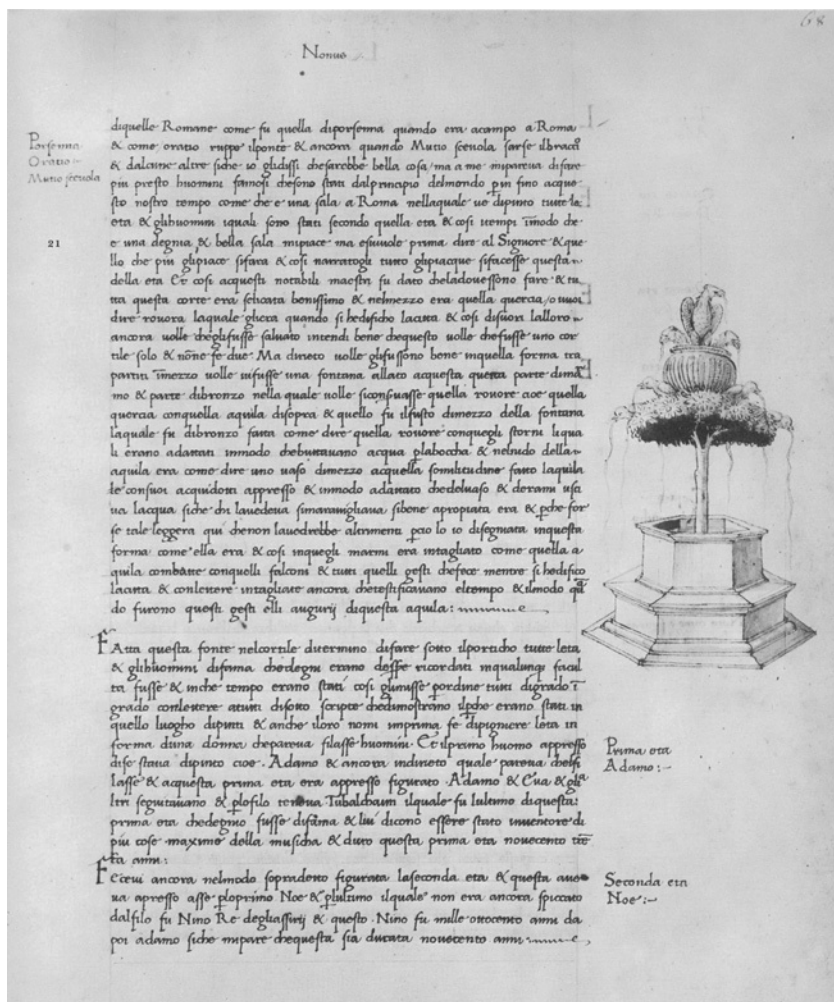 68
Nonus
diquelle Romane come fu quella diporsenna quando era acampo a Roma
& come oratio ruppe ilponte & ancora quando Mutio sceuola sarse ilbracio
& dalcune altre siche io glidissi chesarebbe bella cosa, ma a me mipareua difare
piu presto huomini famosi chesono stati dalprincipio delmondo p̄ in fino acque
sto nostro tempo come che e una sala a Roma nellaquale ue dipinto tutte le
eta & glihuomini iquali sono stati secondo quella eta & cosi itempi īmodo che
e una degnia & bella sala mipiace ma esiuuole prima dire al Signiore & que
llo che piu glipiace sifara & cosi narratogli tutto glipiacque sifacesse questa
della eta Et cosi acquesti notabili maestri fu dato cheladouessono fare & tu
tta questa corte era selicata benissimo & nelmezzo era quella quercia, o uuoi
dire rouora laquale ghera quando si hedificho lacitta & cosi difuori lalloro
ancora uolle cheglifusse saluato intendi bene chequesto uolle chefusse uno cor
tile solo & nōne fe due Ma dirieto uolle glifussono bene inquella forma tra
partiti īmezzo uolle uifusse una fontana allato acquesta questa parte dima
mo & parte dibronzo nella quale uolle siconseruasse quella rouore cioe quella
quercia conquella aquila disopra & quello fu ilfusto dimezzo della fontana
laquale fu dibronzo fatta come dire quella rouore conquegli storni liqua
li erano adattati inmodo chebuttauano acqua p̄laboccha & nelnido della
aquila era come dire uno uaso dimezzo acquella somilitudine fatto laquila
te consuoi acquidotti appresso & inmodo adattato chedeluaso & derami usci
ua lacqua siche chi lauedeua simarauigliaua sibene apropiata era & p̄che for
se tale leggera qui chenon lauedrebbe altrimenti p̄cio lo io disegniata inquesta
forma come ella era & cosi inquegli marmi era intagliato come quella a
quila combatte conquelli falconi & tutti quelli gesti chefece mentre si hedifico
lacitta & conlettere intagliate ancora chetestificauano eltempo & ilmodo quā
do furono questi gesti elli augurij diquesta aquila:
Porsenna
Oratio
Mutio sceuola
21
FAtta questa fonte nelcortile ditermino difare sotto ilporticho tutte leta
& glihuomini difama chedegni erano desse ricordati inqualunqȝ facul
ta fusse & inche tempo erano stati cosi glimisse p̄ordine tutti digrado ī
grado conlettere atutti disotto scripte chedimostrano ilp̄che erano stati in
quello luogho dipinti & anche iloro nomi imprima fe dipigniere leta in
forma duna donna chepareua filasse huomini. Et ilprimo huomo appresso
dise staua dipinto cioe. Adamo & ancora indrieto quale pareua chelfi
lasse & acquesta prima eta era appresso figurato Adamo & Eua & gla
ltri seguitauano & p̄lofilo teneua Tubalchaim ilquale fu lultimo diquesta
prima eta chedegnio fusse difama & lui dicono essere stato inuentore di
piu cose maxime della musicha & duro questa prima eta nouecento trē
ta anni:
Prima eta
Adamo:~
Feceui ancora nelmodo sopradetto figurata laseconda eta & questa aue
ua apresso asse p̄loprimo Noe & p̄lultimo ilquale non era ancora spiccato
dalfilo fu Nino Re degliassirij & questo. Nino fu mille ottocento anni da
poi adamo siche mipare chequesta sia durata nouecento anni
Seconda eta
Noe:~